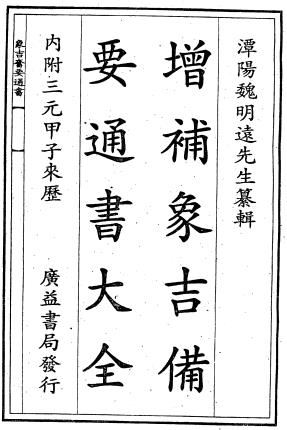 潭陽魏明遠先生纂輯
增補象吉備
要通書大全
內附三元甲子來歷
廣益書局發行
象吉備要通書